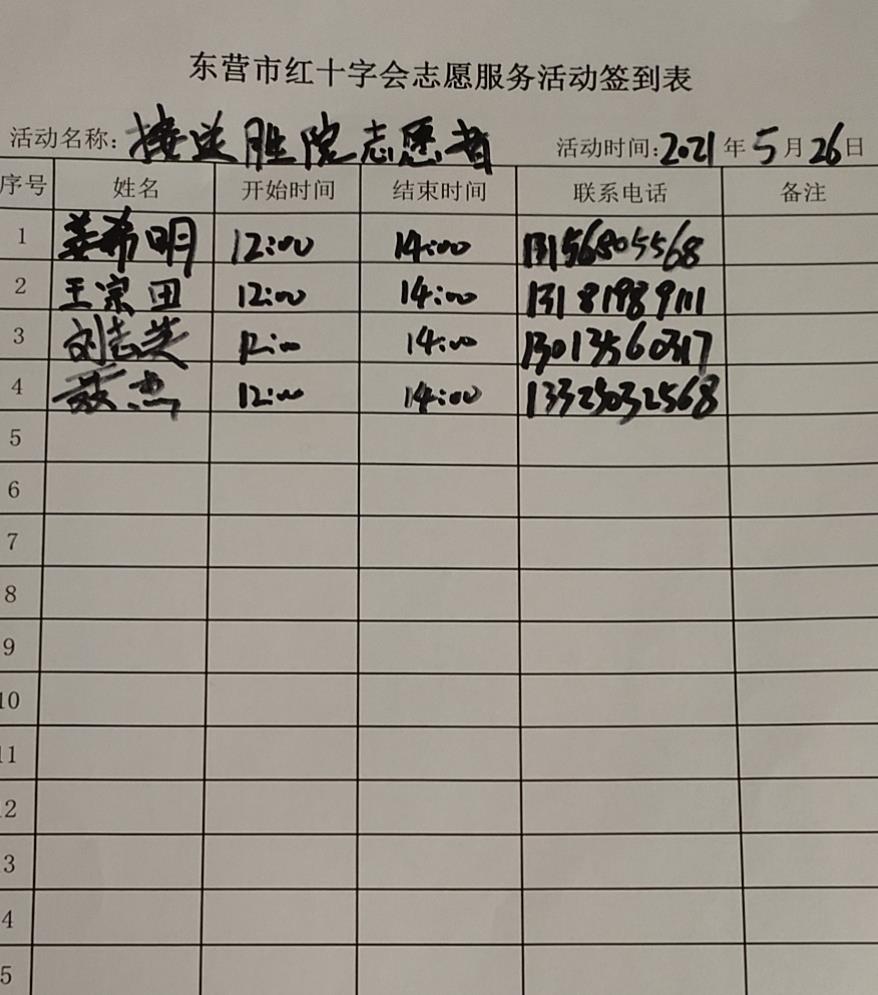 东营市红十字会志愿服务活动签到表
活动名称: 接送胜院志愿者 活动时间:2021年5月26日
序号 姓名 开始时间 结束时间 联系电话 备注
1 姜希明 12:00 14:00 13156805568
2 王宗田 12:00 14:00 13181989111
3 刘志英 12:00 14:00 13013560317
4 杰 12:00 14:00
5
6
7
8
9
10
11
12
3
4
5